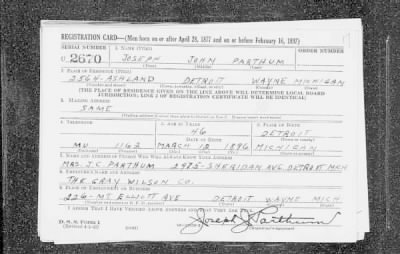 REGISTRATION CARD—(Men born on or after April 28, 1877 and on or before February 16, 1897)
SERIAL NUMBER 1. NAME (Print) ORDER NUMBER
U 2670 JOSEPH JOHN PARTHUM
2. PLACE OF RESIDENCE (Print)
2564-ASHLAND DETROIT WAYNE MICHIGAN
[THE PLACE OF RESIDENCE GIVEN ON THE LINE ABOVE WILL DETERMINE LOCAL BOARD
JURISDICTION; LINE 2 OF REGISTRATION CERTIFICATE WILL BE IDENTICAL]
3. MAILING ADDRESS
SAME
4. TELEPHONE 5. AGE IN YEARS 6. PLACE OF BIRTH
46 DETROIT
DATE OF BIRTH
MU 1163 MARCH 10 1896 MICHIGAN
7. NAME AND ADDRESS OF PERSON WHO WILL ALWAYS KNOW YOUR ADDRESS
MRS. J.C. PARTHUM 2975-SHERIDAN AVE. DETROIT MCH
8. EMPLOYER'S NAME AND ADDRESS
THE GRAY WILSON CO.
9. PLACE OF EMPLOYMENT OR BUSINESS
226-MT. ELLIOTT AVE DETROIT WAYNE MICH
I AFFIRM THAT I HAVE VERIFIED ABOVE ANSWERS AND THAT THEY ARE TRUE.
D. S. S. Form 1
Joseph J. Parthum